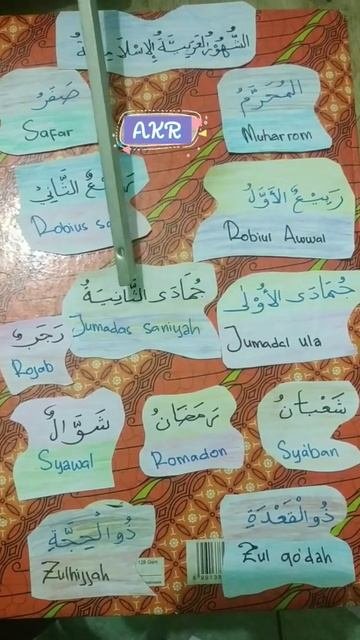 الشُّهُوْرُ الْعَرَبِيَّةُ الْإِسْلَامِيَّةُ
صَفَرُ
Safar
AKR
الْمُحَرَّمُ
Muharrom
رَبِيْعُ الثَّانِيْ
Robius sa
رَبِيْعُ الْأَوَّلُ
Robiul Awwal
جُمَادَى الثَّانِيَةُ
Jumadas saniyah
جُمَادَى الْأُوْلَى
Jumadal ula
رَجَبُ
Rojab
شَوَّالُ
Syawal
رَمَضَانُ
Romadon
شَعْبَانُ
Sya'ban
ذُو الْحِجَّةِ
Zulhijjah
ذُو الْقَعْدَةِ
Zul qo'dah